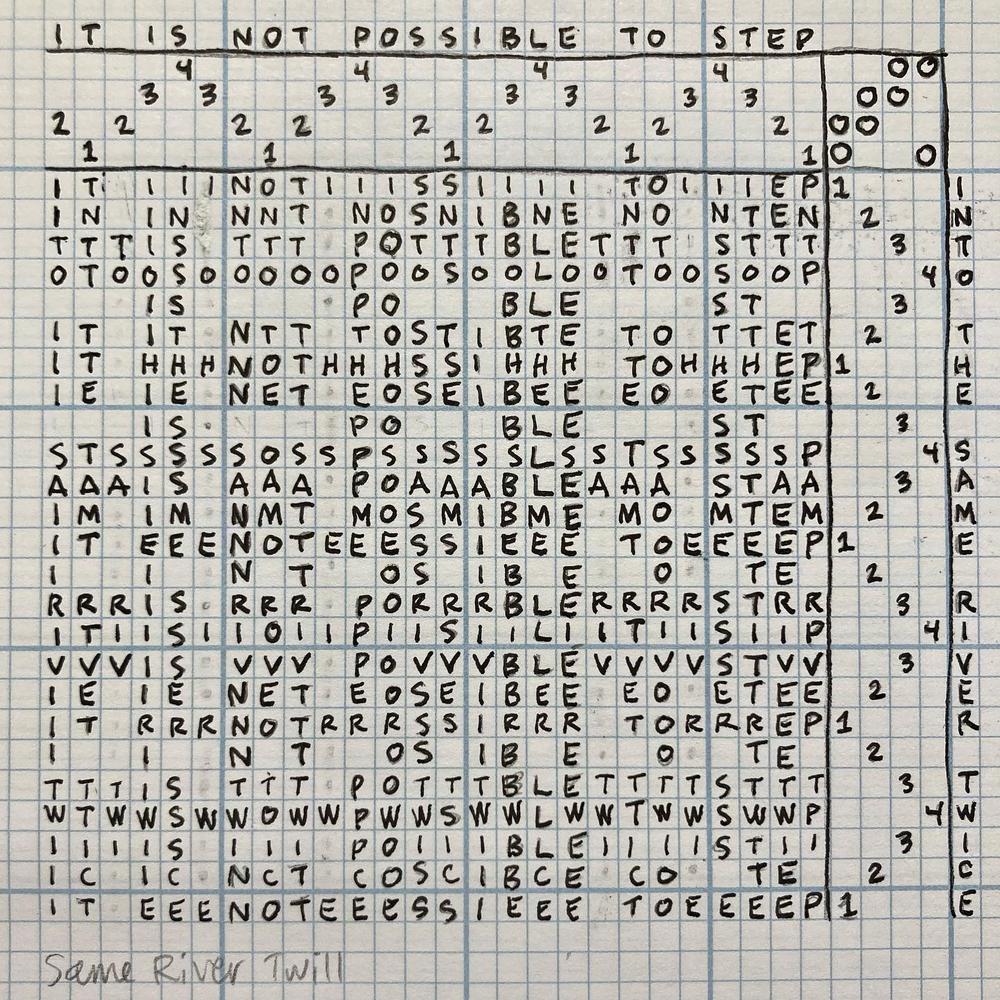 IT IS NOT POSSIBLE TO STEP
4 4 4 4 O O
3 3 3 3 3 3 3 3 O O
2 2 2 2 2 2 2 2 2 O O
1 1 1 1 1 O O
IT IIINOTIIISSIIII TOIIIEP 1 I
IN IN NNT NOSNIBNE NO NTEN 2 N
TTTIS TTT POTTTBLETTT STTT 3 T
OTOOSOOOOOPOOSOOLOOTOOSOOP 4 O
IS PO BLE ST 3
IT IT NTT TOSTIBTE TO TTET 2 T
IT HHHNOTHHHSSIHHH TOHHHEP 1 H
IE IE NET EOSEIBEE EO ETEE 2 E
IS PO BLE ST 3
STSSSSSOSSPSSSSSLSSTSSSSSP 4 S
AAAIS AAA POAAABLEAAA STAA 3 A
IM IM NMT MOSMIBME MO MTEM 2 M
IT EEENOTEEESSIEEE TOEEEEP 1 E
I I N T OS IB E O TE 2
RRRIS RRR PORRRBLERRRRSTRR 3 R
ITIISIIOIIPIISIILIITIISIIP 4 I
VVVIS VVV POVVVBLEVVVVSTVV 3 V
IE IE NET EOSEIBEE EO ETEE 2 E
IT RRRNOTRRRSSIRRR TORRREP 1 R
I I N T OS IB E O TE 2
TTTIS TTT POTTTBLETTTTSTTT 3 T
WTWWSWWOWWPWWSWWLWWTWWSWWP 4 W
IIIIS III POIIIBLEIIIISTII 3 I
IC IC NCT COSCIBCE CO TE 2 C
IT EEENOTEEESSIEEE TOEEEEP 1 E
Same River Twill